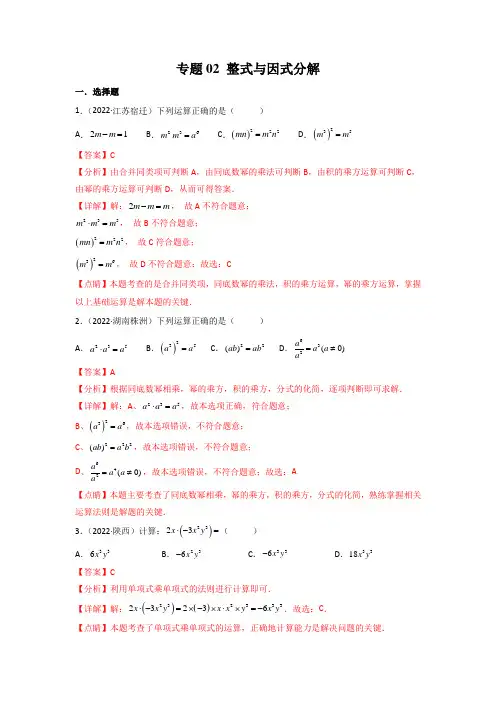 专题02 整式与因式分解
一．选择题
1．（2022·江苏宿迁）下列运算正确的是（　　）
A．2m－m＝1　B．m²·m³＝a⁶　C．(mn)²＝m²n²　D．(m³)²＝m⁵
【答案】C
【分析】由合并同类项可判断A，由同底数幂的乘法可判断B，由积的乘方运算可判断C，
由幂的乘方运算可判断D，从而可得答案．
【详解】解：2m－m＝m， 故A不符合题意；
m²·m³＝m⁵， 故B不符合题意；
(mn)²＝m²n²， 故C符合题意；
(m³)²＝m⁶， 故D不符合题意；故选：C
【点睛】本题考查的是合并同类项，同底数幂的乘法，积的乘方运算，幂的乘方运算，掌握
以上基础运算是解本题的关键．
2．（2022·湖南株洲）下列运算正确的是（　　）
A．a²·a³＝a⁵　B．(a³)²＝a⁵　C．(ab)²＝ab²　D．a⁶/a²＝a³(a≠0)
【答案】A
【分析】根据同底数幂相乘，幂的乘方，积的乘方，分式的化简，逐项判断即可求解．
【详解】解：A、a²·a³＝a⁵，故本选项正确，符合题意；
B、(a³)²＝a⁶，故本选项错误，不符合题意；
C、(ab)²＝a²b²，故本选项错误，不符合题意；
D、a⁶/a²＝a⁴(a≠0)，故本选项错误，不符合题意；故选：A
【点睛】本题主要考查了同底数幂相乘，幂的乘方，积的乘方，分式的化简，熟练掌握相关
运算法则是解题的关键．
3．（2022·陕西）计算：2x·(－3x²y³)＝（　　）
A．6x³y³　B．－6x²y³　C．－6x³y³　D．18x³y³
【答案】C
【分析】利用单项式乘单项式的法则进行计算即可．
【详解】解：2x·(－3x²y³)＝2×(－3)×x·x²×y³＝－6x³y³．故选：C．
【点睛】本题考查了单项式乘单项式的运算，正确地计算能力是解决问题的关键．